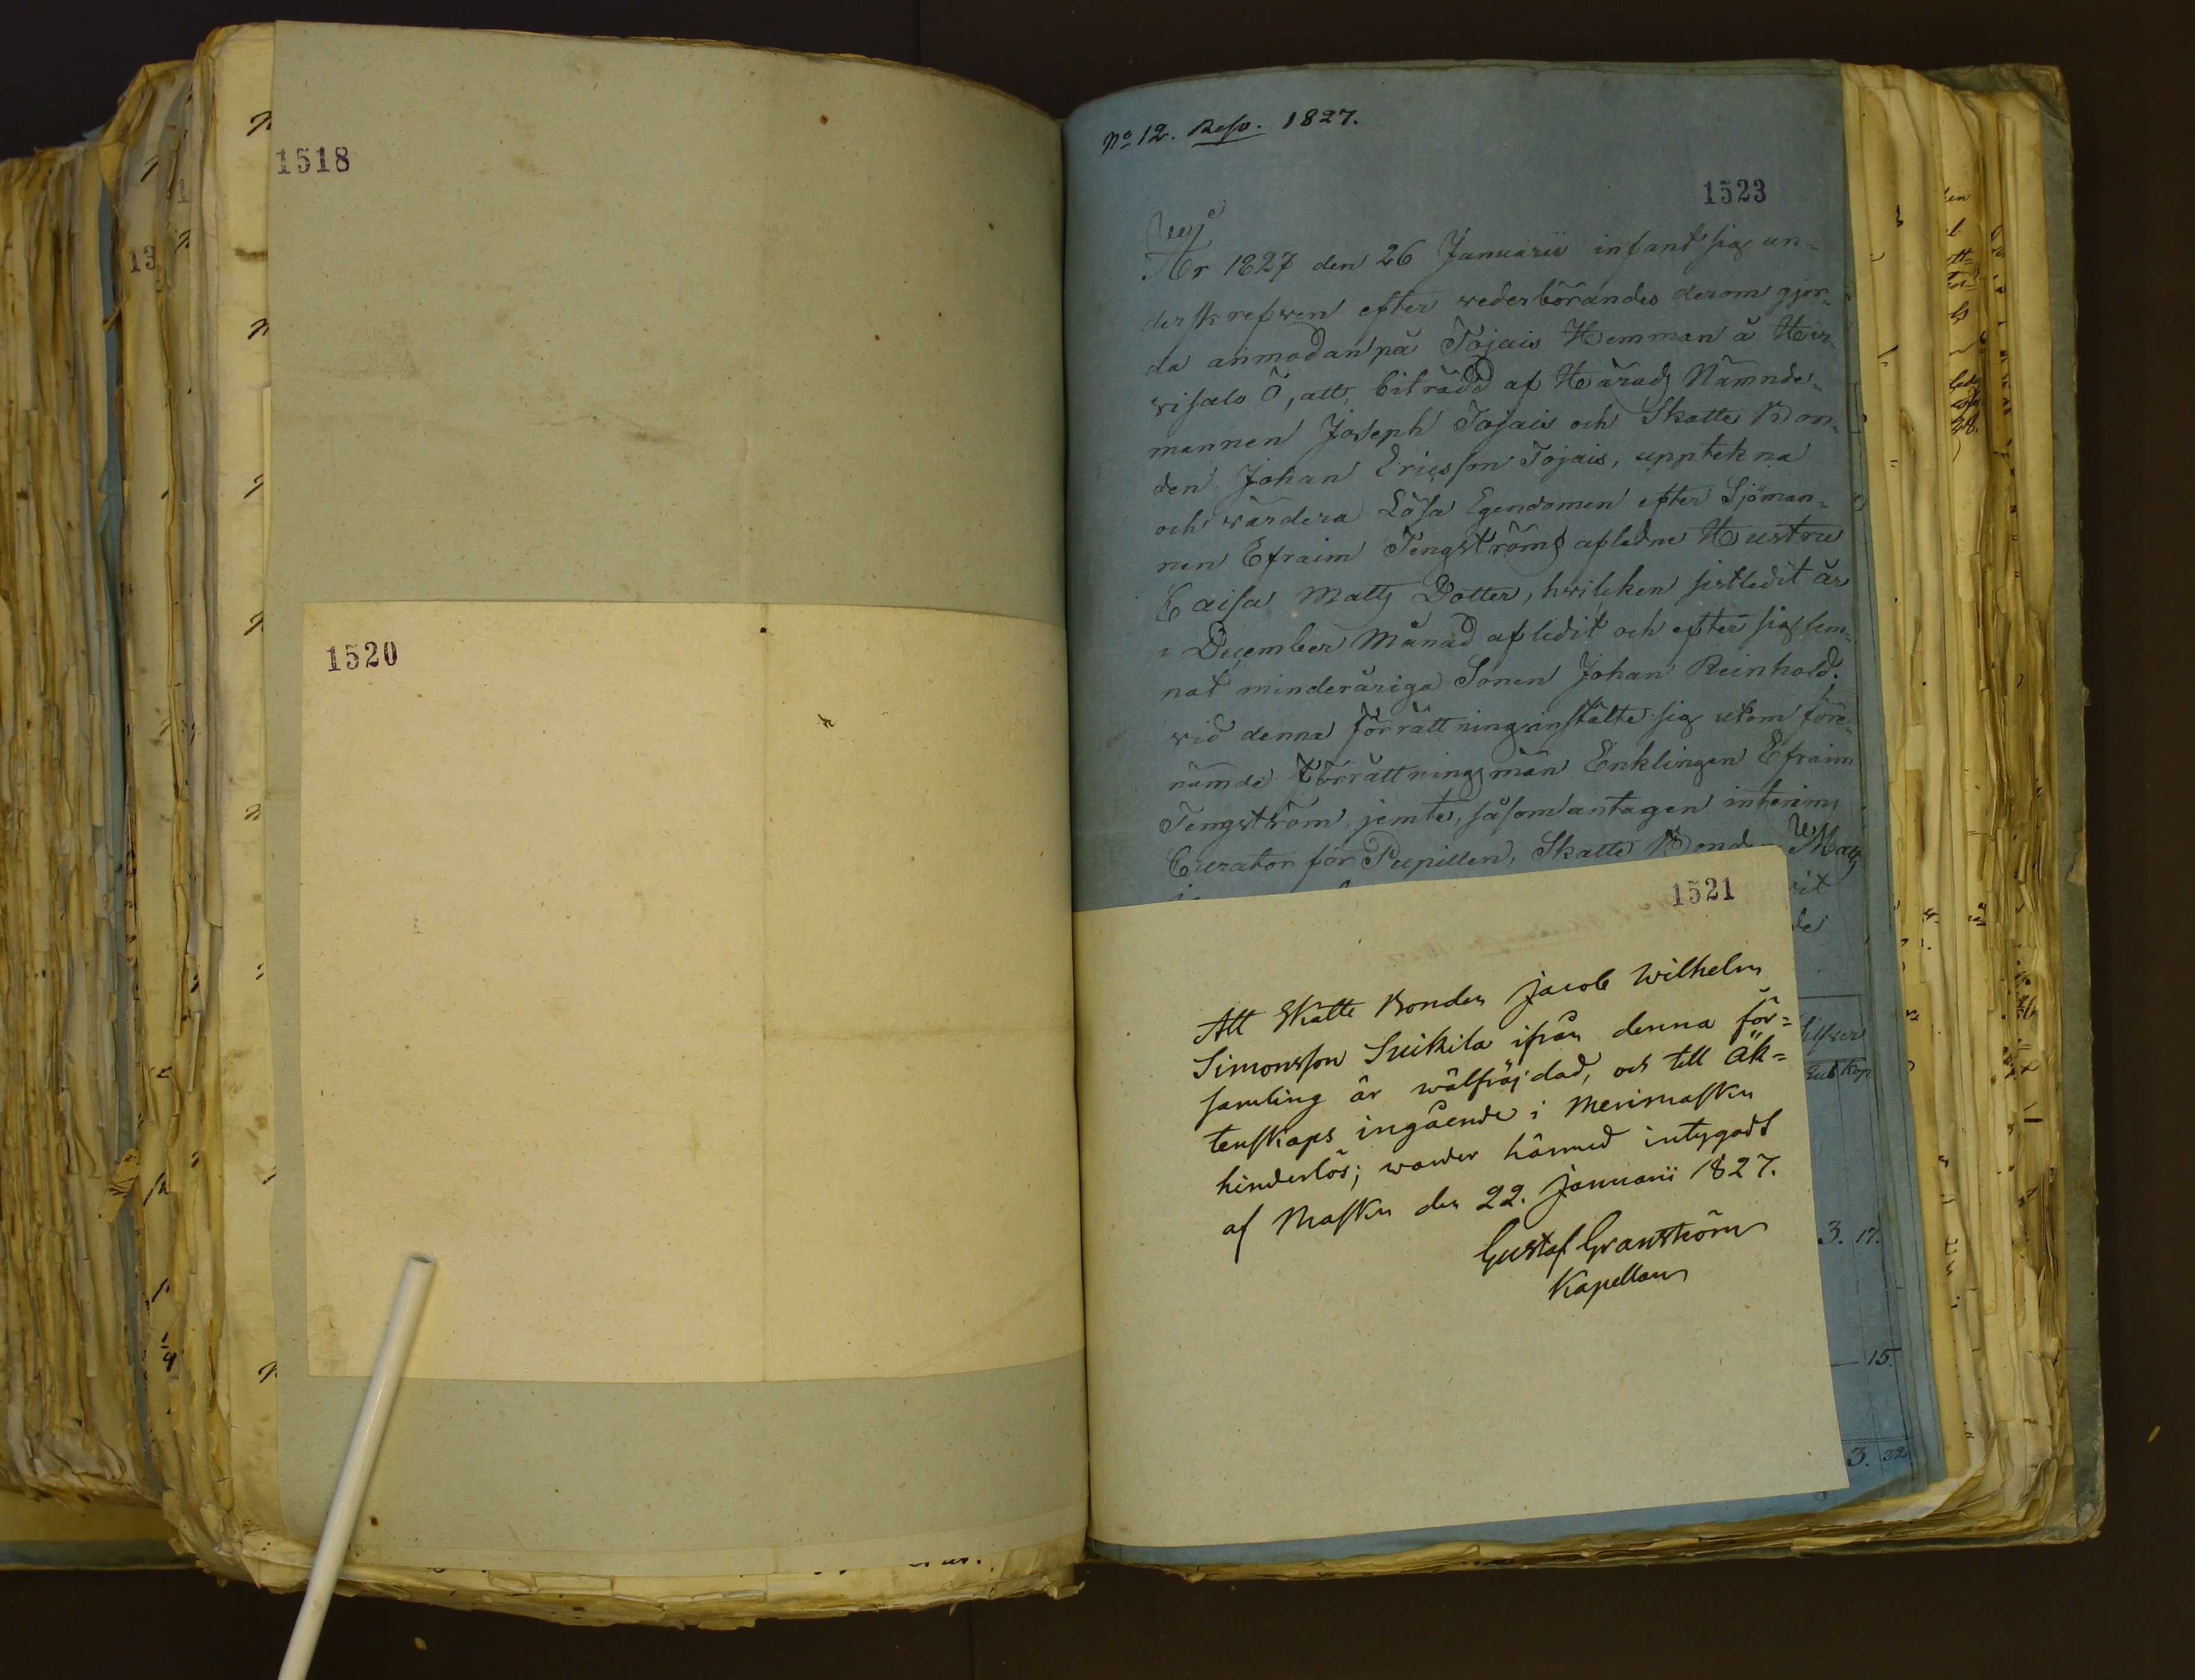 1518
1520
No 12. Reso. 1827.
1523
År 1827 den 26 Januarii infant sig un-
derskrefwen efter wederbörandes derom gjor-
da anmodan på Tojais Hemman å Her-
wisalo Ö, att, biträdd af Härads Nämnde-
mannen Joseph Tojais och Skatte Bon-
den Johan Ericsson Tojais, upptekna
och wärdera Lösa Egendomen efter Sjöman-
nen Efraim Tengströms aflidne Hustru
Caisa Matts Dotter, hwilcken sistledit år
i December Månad aflidit och efter sig lem-
nat minderåriga Sonen Johan Reinhold.
wid denna förrättning instälte sig utom före-
nämde Förrättningsmän Enklingen Efraim
Tengström, jemte, såsom antagen interims
Curator för Pupillen, Skatte Bonden Matts
1521
Att Skatte Bonden Jacob Wilhelm
Simonsson Suikila ifrån denna för=
samling är wälfräjdad, och till Äk=
tenskaps ingående i Merimasku
hinderlös; warder härmed intygadt
af Masku den 22. Januarii 1827.
Gustaf Granström
Kapellan
Rub Kop
3. 17.
— 15.
3. 32